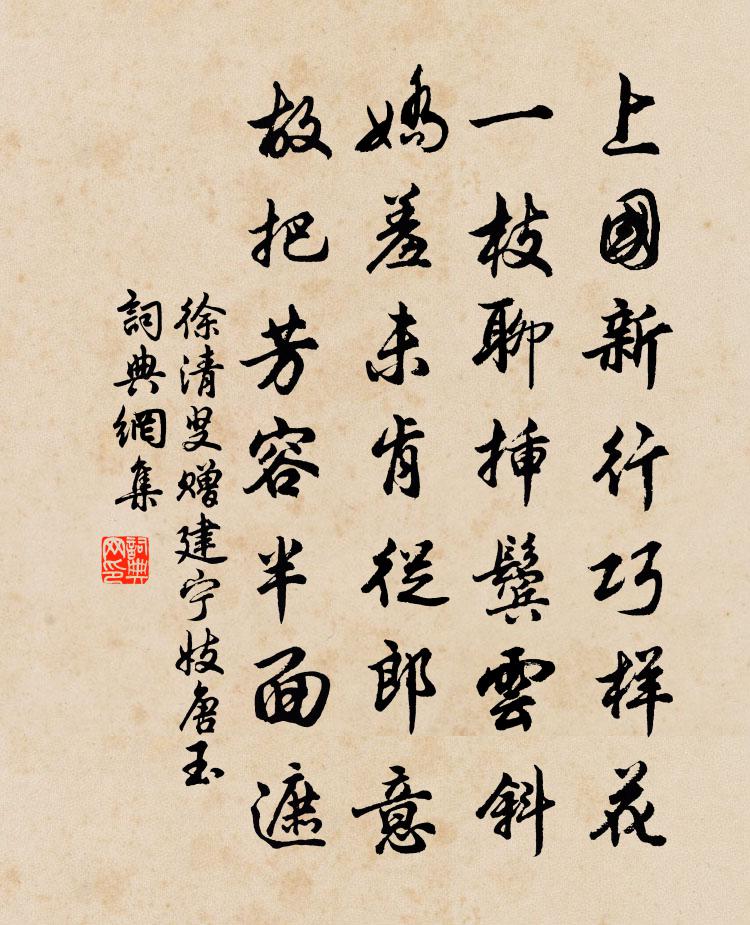 上國新行巧样花
一枝聊挿鬓雲斜
嬌羞未肯從郎意
故把芳容半面遮
徐清叟赠建宁妓唐玉
詞典網集
詞典网印